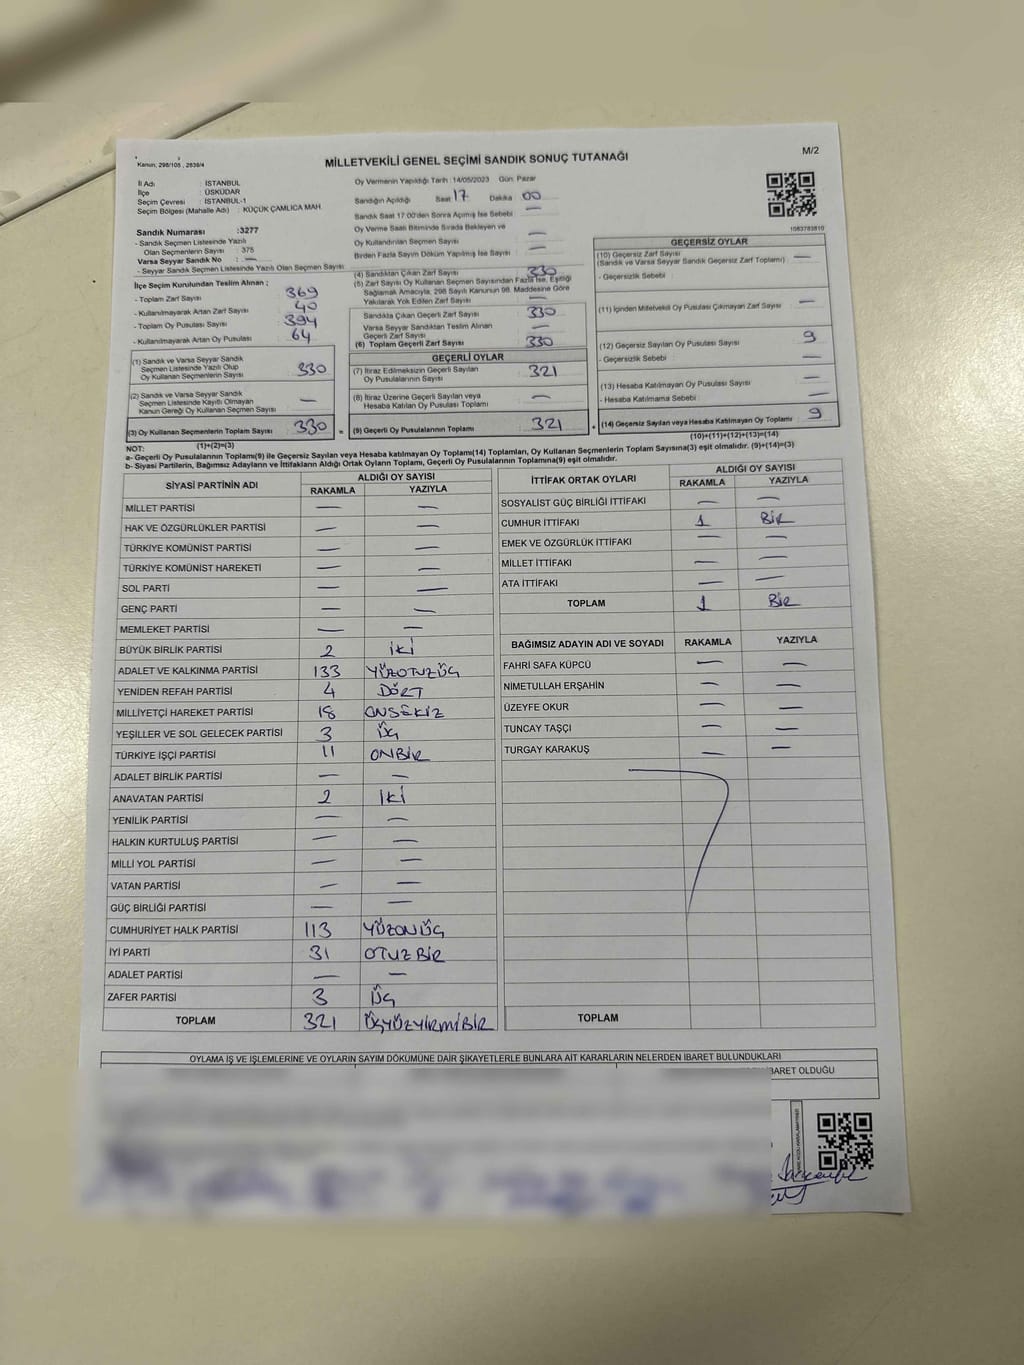 Kanun: 298/105 , 2839/4
MİLLETVEKİLİ GENEL SEÇİMİ SANDIK SONUÇ TUTANAĞI
M/2
İl Adı : İSTANBUL
İlçe : ÜSKÜDAR
Seçim Çevresi : İSTANBUL-1
Seçim Bölgesi (Mahalle Adı) : KÜÇÜK ÇAMLICA MAH.
Sandık Numarası :3277
- Sandık Seçmen Listesinde Yazılı
Olan Seçmenlerin Sayısı : 375
Varsa Seyyar Sandık No : —
- Seyyar Sandık Seçmen Listesinde Yazılı Olan Seçmen Sayısı:
İlçe Seçim Kurulundan Teslim Alınan ;
- Toplam Zarf Sayısı 369
- Kullanılmayarak Artan Zarf Sayısı 40
- Toplam Oy Pusulası Sayısı 394
- Kullanılmayarak Artan Oy Pusulası 64
(1) Sandık ve Varsa Seyyar Sandık
Seçmen Listesinde Yazılı Olup
Oy Kullanan Seçmenlerin Sayısı 330
(2) Sandık ve Varsa Seyyar Sandık
Seçmen Listesinde Kayıtlı Olmayan
Kanun Gereği Oy Kullanan Seçmen Sayısı —
(3) Oy Kullanan Seçmenlerin Toplam Sayısı 330 =
(1)+(2)=(3)
Oy Vermenin Yapıldığı Tarih :14/05/2023 Gün: Pazar
Sandığın Açıldığı Saat 17 Dakika 00
Sandık Saat 17:00'den Sonra Açılmış İse Sebebi —
Oy Verme Saati Bitiminde Sırada Bekleyen ve
Oy Kullandırılan Seçmen Sayısı —
Birden Fazla Sayım Döküm Yapılmış İse Sayısı —
(4) Sandıktan Çıkan Zarf Sayısı 330
(5) Zarf Sayısı Oy Kullanan Seçmen Sayısından Fazla İse, Eşitliği
Sağlamak Amacıyla, 298 Sayılı Kanunun 98. Maddesine Göre
Yakılarak Yok Edilen Zarf Sayısı —
Sandıkta Çıkan Geçerli Zarf Sayısı 330
Varsa Seyyar Sandıktan Teslim Alınan
Geçerli Zarf Sayısı —
(6) Toplam Geçerli Zarf Sayısı 330
GEÇERLİ OYLAR
(7) İtiraz Edilmeksizin Geçerli Sayılan
Oy Pusulalarının Sayısı 321
(8) İtiraz Üzerine Geçerli Sayılan veya
Hesaba Katılan Oy Pusulası Toplamı —
(9) Geçerli Oy Pusulalarının Toplamı 321 +
1083783810
GEÇERSİZ OYLAR
(10) Geçersiz Zarf Sayısı
(Sandık ve Varsa Seyyar Sandık Geçersiz Zarf Toplamı) —
- Geçersizlik Sebebi
(11) İçinden Milletvekili Oy Pusulası Çıkmayan Zarf Sayısı —
(12) Geçersiz Sayılan Oy Pusulası Sayısı 9
- Geçersizlik Sebebi —
(13) Hesaba Katılmayan Oy Pusulası Sayısı —
- Hesaba Katılmama Sebebi —
(14) Geçersiz Sayılan veya Hesaba Katılmayan Oy Toplamı 9
(10)+(11)+(12)+(13)=(14)
NOT:
a- Geçerli Oy Pusulası Toplamı(9) ile Geçersiz Sayılan veya Hesaba katılmayan Oy Toplamı(14) Toplamları, Oy Kullanan Seçmenlerin Toplam Sayısına(3) eşit olmalıdır. (9)+(14)=(3)
b- Siyasi Partilerin, Bağımsız Adayların ve İttifakların Aldığı Ortak Oyların Toplamı, Geçerli Oy Pusulalarının Toplamına(9) eşit olmalıdır.
SİYASİ PARTİNİN ADI ALDIĞI OY SAYISI
RAKAMLA YAZIYLA
MİLLET PARTİSİ — —
HAK VE ÖZGÜRLÜKLER PARTİSİ — —
TÜRKİYE KOMÜNİST PARTİSİ — —
TÜRKİYE KOMÜNİST HAREKETİ — —
SOL PARTİ — —
GENÇ PARTİ — —
MEMLEKET PARTİSİ — —
BÜYÜK BİRLİK PARTİSİ 2 İKİ
ADALET VE KALKINMA PARTİSİ 133 YÜZOTUZÜÇ
YENİDEN REFAH PARTİSİ 4 DÖRT
MİLLİYETÇİ HAREKET PARTİSİ 18 ONSEKİZ
YEŞİLLER VE SOL GELECEK PARTİSİ 3 ÜÇ
TÜRKİYE İŞÇİ PARTİSİ 11 ONBİR
ADALET BİRLİK PARTİSİ — —
ANAVATAN PARTİSİ 2 İKİ
YENİLİK PARTİSİ — —
HALKIN KURTULUŞ PARTİSİ — —
MİLLİ YOL PARTİSİ — —
VATAN PARTİSİ — —
GÜÇ BİRLİĞİ PARTİSİ — —
CUMHURİYET HALK PARTİSİ 113 YÜZONÜÇ
İYİ PARTİ 31 OTUZBİR
ADALET PARTİSİ — —
ZAFER PARTİSİ 3 ÜÇ
TOPLAM 321 ÜÇYÜZYİRMİBİR
İTTİFAK ORTAK OYLARI ALDIĞI OY SAYISI
RAKAMLA YAZIYLA
SOSYALİST GÜÇ BİRLİĞİ İTTİFAKI — —
CUMHUR İTTİFAKI 1 BİR
EMEK VE ÖZGÜRLÜK İTTİFAKI — —
MİLLET İTTİFAKI — —
ATA İTTİFAKI — —
TOPLAM 1 BİR
BAĞIMSIZ ADAYIN ADI VE SOYADI RAKAMLA YAZIYLA
FAHRİ SAFA KÜPCÜ — —
NİMETULLAH ERŞAHİN — —
ÜZEYFE OKUR — —
TUNCAY TAŞÇI — —
TURGAY KARAKUŞ — —
TOPLAM
OYLAMA İŞ VE İŞLEMLERİNE VE OYLARIN SAYIM DÖKÜMÜNE DAİR ŞİKAYETLERLE BUNLARA AİT KARARLARIN NELERDEN İBARET BULUNDUKLARI
İBARET OLDUĞU